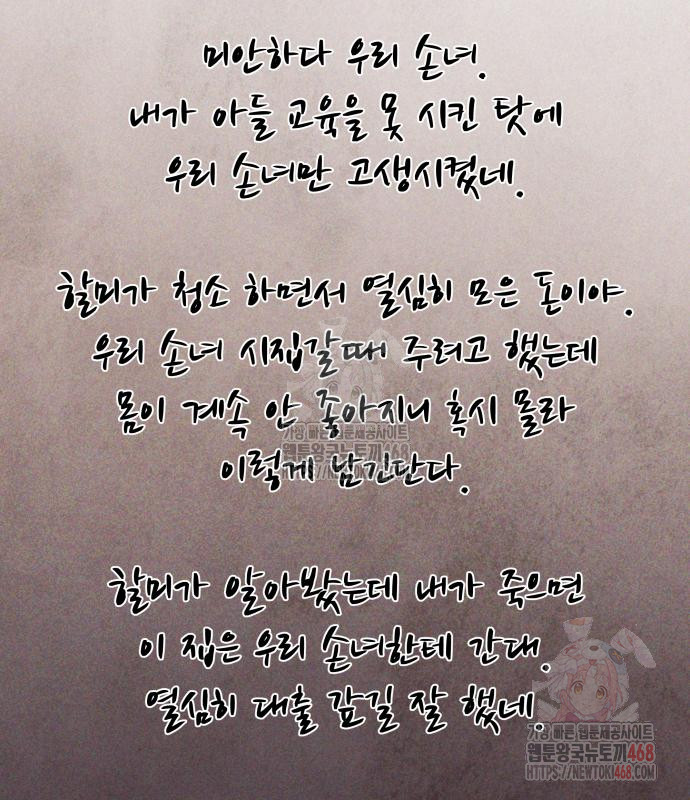 미안하다 우리 손녀.
내가 아들 교육을 못 시킨 탓에
우리 손녀만 고생시켰네.
할미가 청소 하면서 열심히 모은 돈이야.
우리 손녀 시집갈때 주려고 했는데
몸이 계속 안 좋아지니 혹시 몰라
가장 빠른 웹툰제공사이트
웹툰왕국뉴토끼468
HTTPS://NEWTOKI468.COM
이렇게 남긴단다.
할미가 알아봤는데 내가 죽으면
이 집은 우리 손녀한테 간대.
열심히 대출 갚길 잘 했네.
가장 빠른 웹툰제공사이트
웹툰왕국뉴토끼468
HTTPS://NEWTOKI468.COM